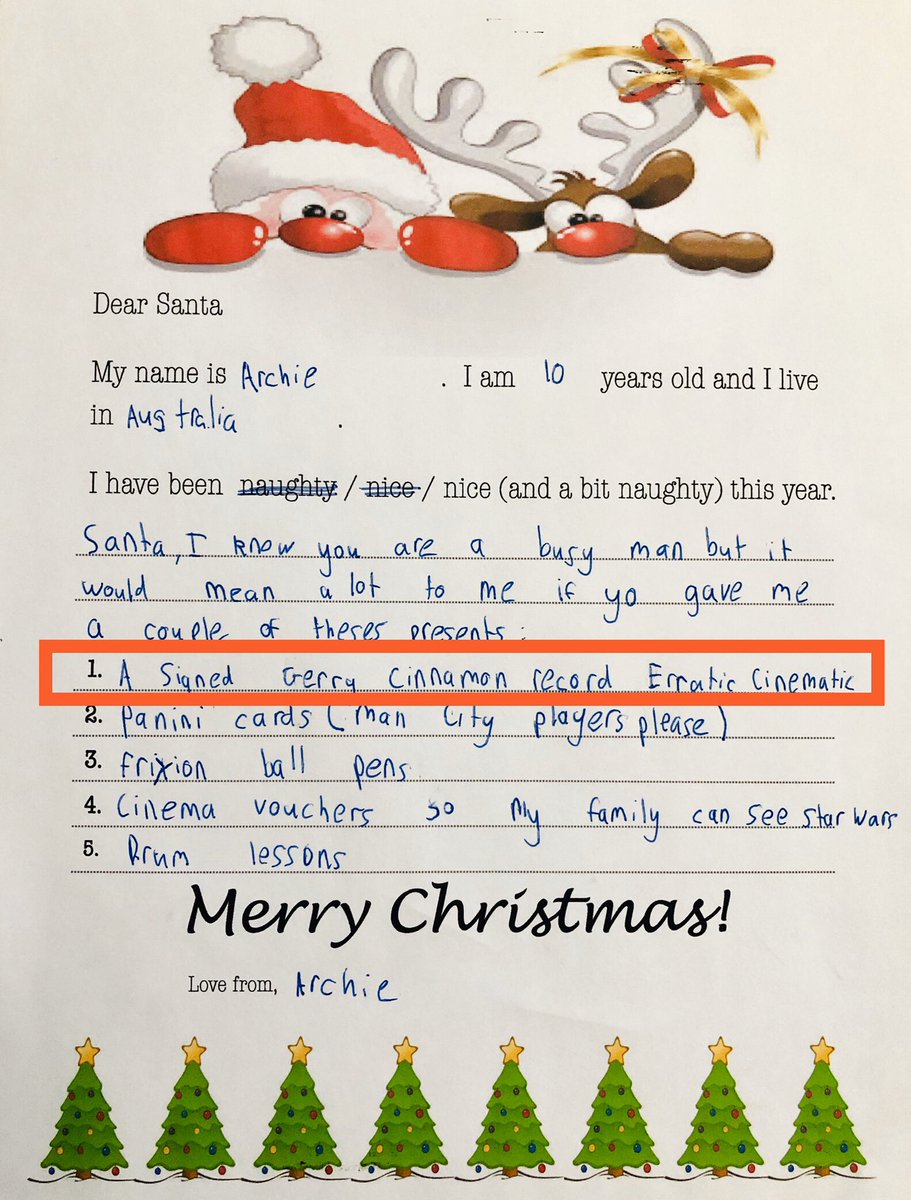 Dear Santa
My name is Archie . I am 10 years old and I live
in Australia .
I have been naughty / nice / nice (and a bit naughty) this year.
Santa, I know you are a busy man but it
would mean a lot to me if yo gave me
a couple of theses presents:
1. A Signed Gerry Cinnamon record Erratic Cinematic
2. Panini cards (Man City players please)
3. Frixion ball pens
4. Cinema vouchers so my family can see star wars
5. Drum lessons
Merry Christmas!
Love from, Archie